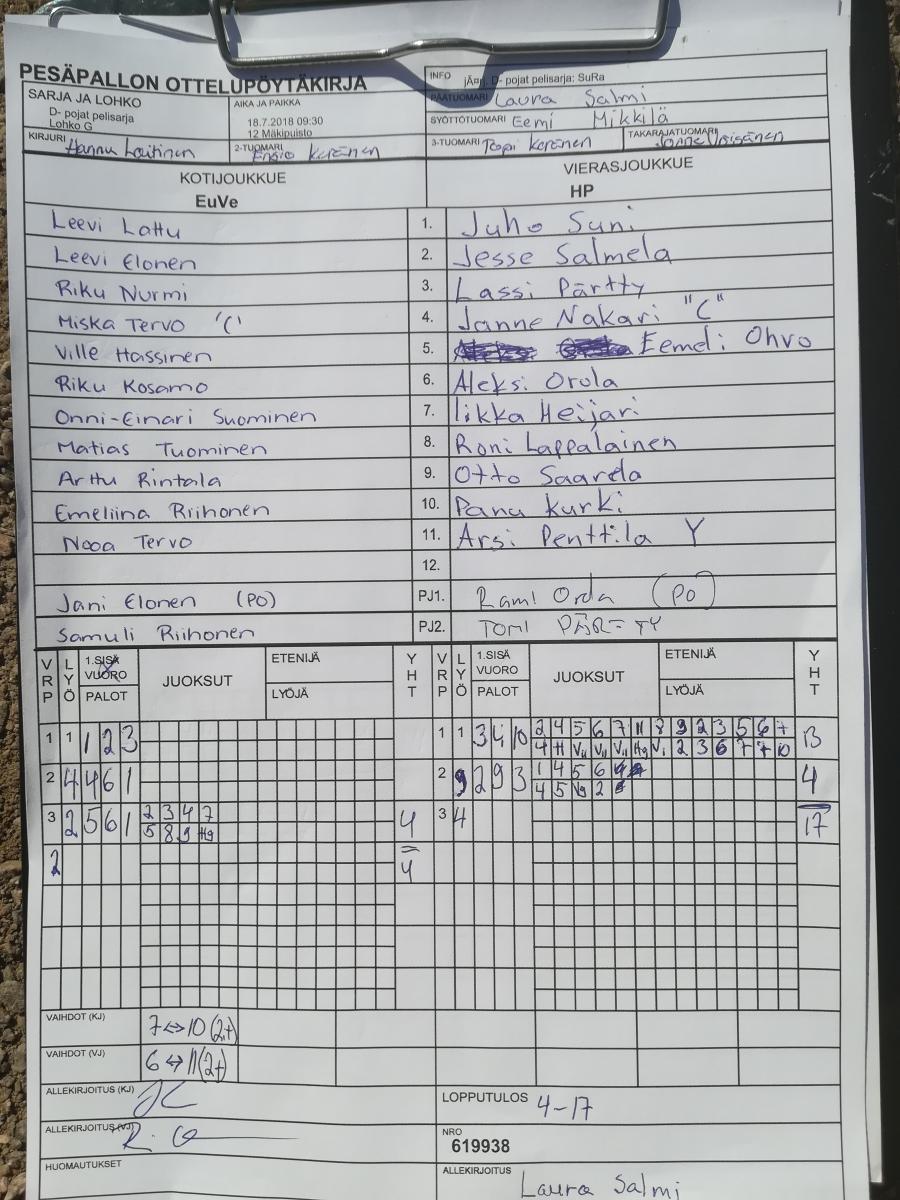 PESÄPALLON OTTELUPÖYTÄKIRJA
INFO jÄ¤rj. D- pojat pelisarja: SuRa
SARJA JA LOHKO
D- pojat pelisarja
Lohko G
AIKA JA PAIKKA
18.7.2018 09:30
12 Mäkipuisto
PÄÄTUOMARI Laura Salmi
SYÖTTÖTUOMARI Eemi Mikkilä
KIRJURI Hannu Lautinen
2-TUOMARI Ensio Keränen
3-TUOMARI Topi Keränen
TAKARAJATUOMARI Janne
KOTIJOUKKUE
EuVe
VIERASJOUKKUE
HP
Leevi Lattu 1. Juho Suni
Leevi Elonen 2. Jesse Salmela
Riku Nurmi 3. Lassi Pärtty
Miska Tervo "C" 4. Janne Nakari "C"
Ville Hassinen 5. Eemeli Ohvo
Riku Kosamo 6. Aleksi Orola
Onni-Einari Suominen 7. Iikka Heijari
Matias Tuominen 8. Roni Lappalainen
Arttu Rintala 9. Otto Saarela
Emeliina Riihonen 10. Panu Kurki
Nooa Tervo 11. Arsi Penttilä Y
12.
Jani Elonen (PO) PJ1. Rami Orola (PO)
Samuli Riihonen PJ2. TOMI PÄRTTY
VRP LYÖ 1.SISÄ VUORO PALOT JUOKSUT ETENIJÄ LYÖJÄ YHT VRP LYÖ 1.SISÄ VUORO PALOT JUOKSUT ETENIJÄ LYÖJÄ YHT
1 1 1 2 3 1 1 3 4 10 2 4 5 6 7 11 8 9 2 3 5 6 7 13
4 H Vii Vii Vii Hg Vi 2 3 6 7 7 10
2 4 4 6 1 2 9 2 9 3 1 4 5 6 4
4 5 Vg 2
3 2 5 6 1 2 3 4 7 4 3 4 17
5 8 9 Hg
2 4
VAIHDOT (KJ) 7↔10 (2+)
VAIHDOT (VJ) 6↔11 (2+)
ALLEKIRJOITUS (KJ)
LOPPUTULOS 4-17
ALLEKIRJOITUS (VJ)
NRO
619938
HUOMAUTUKSET
ALLEKIRJOITUS Laura Salmi